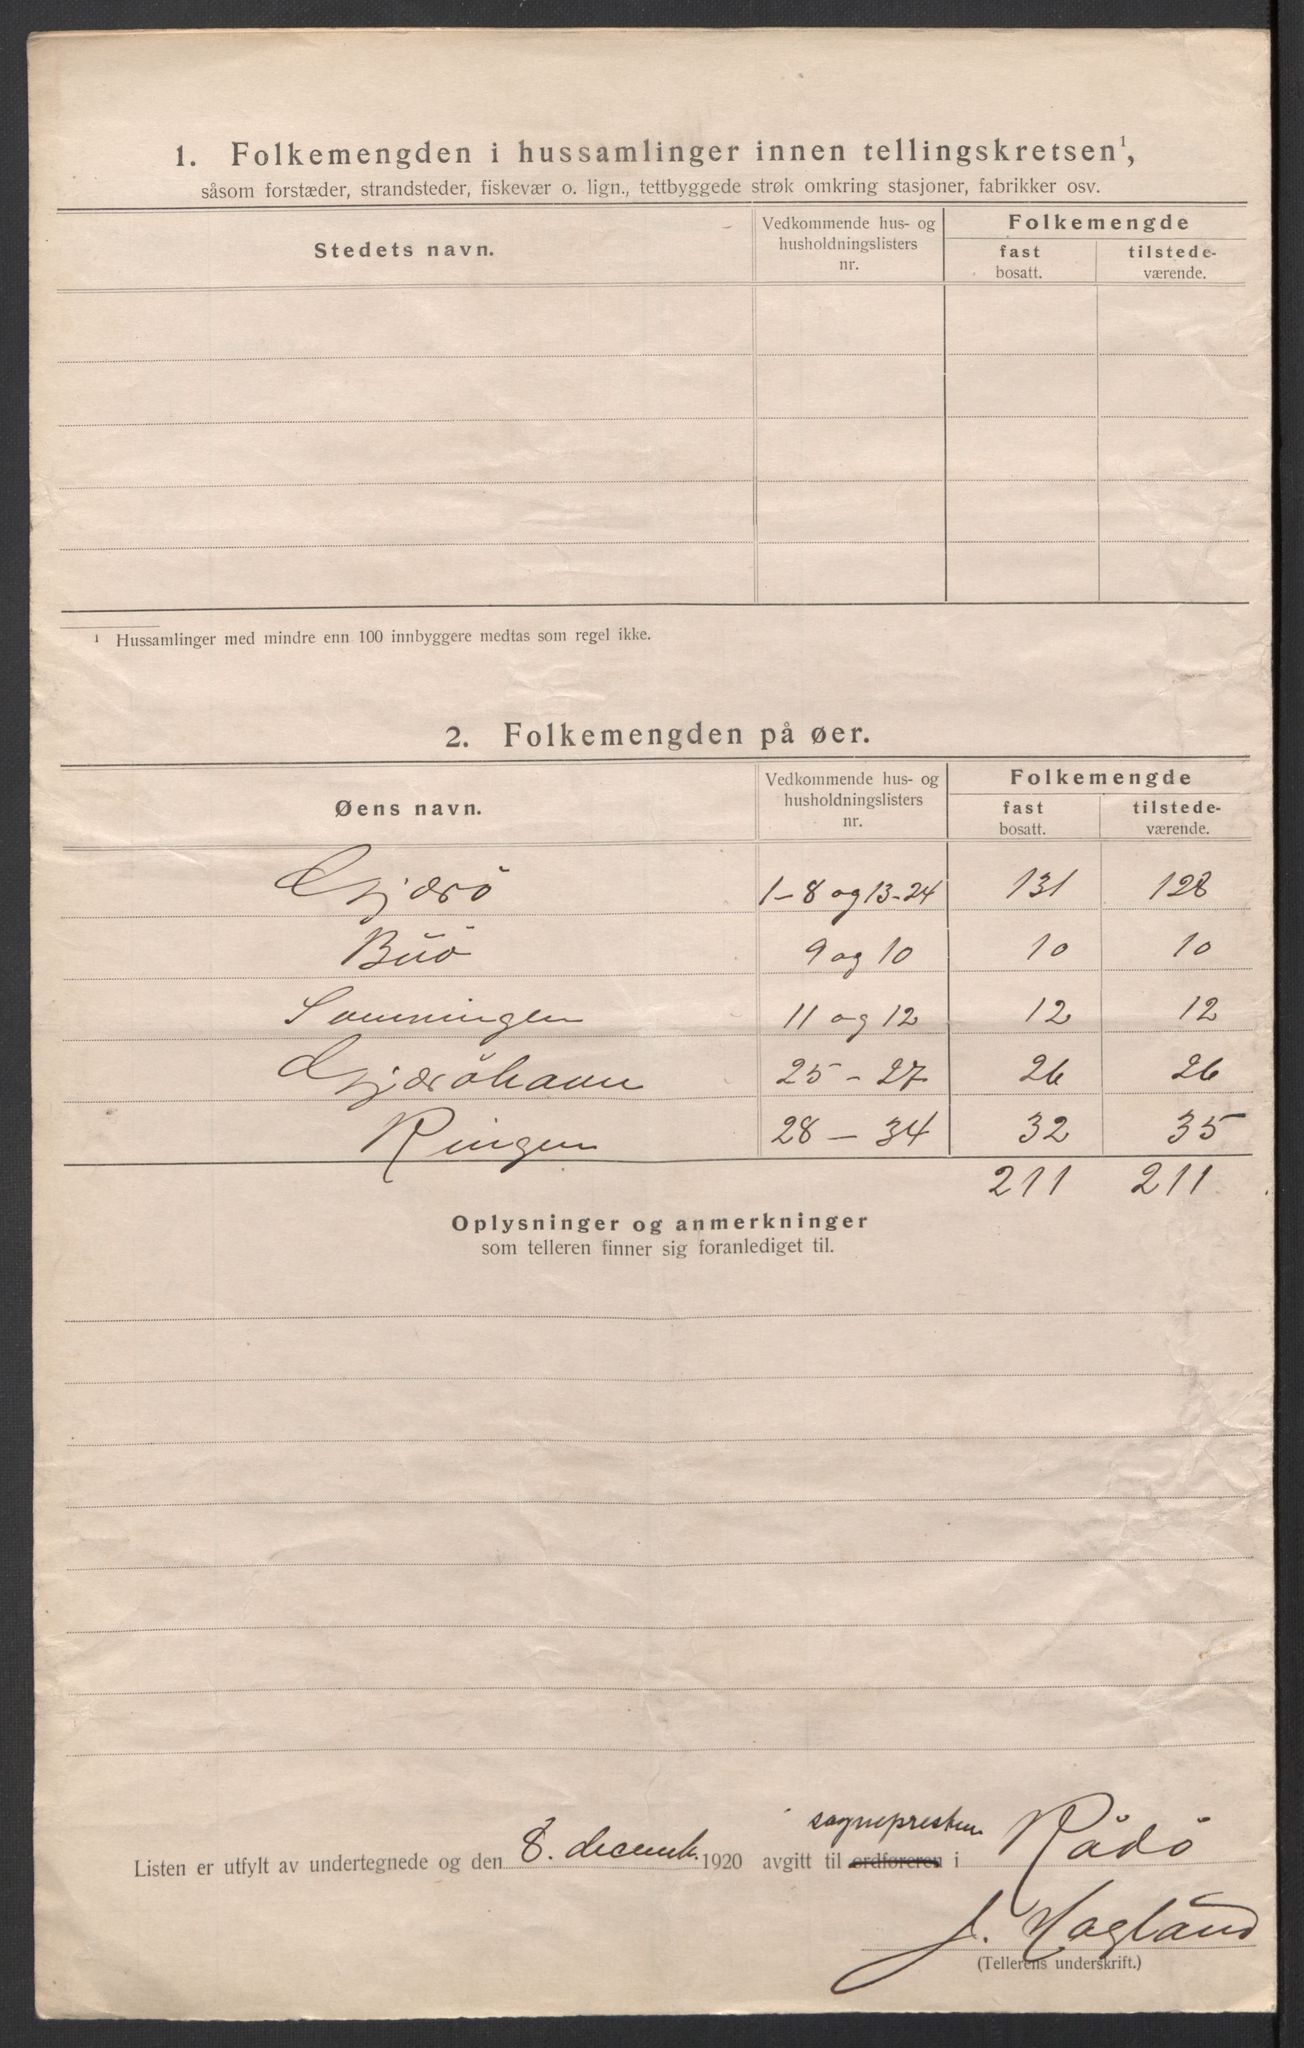 1. Folkemengden i hussamlinger innen tellingskretsen¹,
såsom forstæder, strandsteder, fiskevær o. lign., tettbyggede strøk omkring stasjoner, fabrikker osv.
Stedets navn.
Vedkommende hus- og husholdningslisters nr.
Folkemengde
fast bosatt.
tilstede-værende.
¹ Hussamlinger med mindre enn 100 innbyggere medtas som regel ikke.
2. Folkemengden på øer.
Øens navn.
Vedkommende hus- og husholdningslisters nr.
Folkemengde
fast bosatt.
tilstede-værende.
Gjærö 1-8 og 13-24 131 128
Buö 9 og 10 10 10
Sømningen 11 og 12 12 12
Gjæröhavn 25 - 27 26 26
Ringen 28 - 34 32 35
211 211
Oplysninger og anmerkninger
som telleren finner sig foranlediget til.
sognepresten
Listen er utfylt av undertegnede og den 8. decemb. 1920 avgitt til ordføreren i Rödö
J. Hagland
(Tellerens underskrift.)